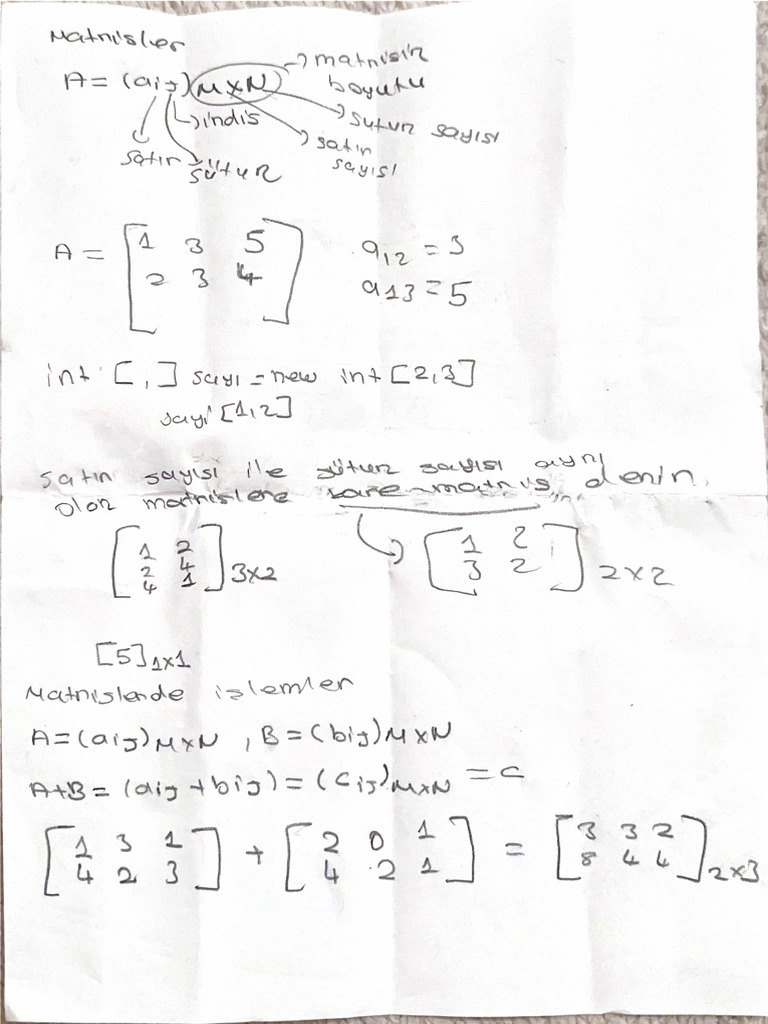 Matrisler
A = (aij) MxN → matrisin boyutu
→ indis
→ sutun sayısı
satır
sütun
→ satır sayısı
A = [1 3 5
2 3 4]
a12 = 3
a13 = 5
int [,] sayı = new int [2,3]
sayı [1,2]
satır sayısı ile sütun sayısı aynı
olan matrislere kare matris denir.
[1 2
2 4
4 1] 3x2
[1 2
3 2] 2x2
[5] 1x1
Matrislerde işlemler
A = (aij) MxN , B = (bij) MxN
A+B = (aij + bij) = (cij) MxN = C
[1 3 1 + [2 0 1 = [3 3 2
4 2 3] 4 2 1] 8 4 4] 2x3